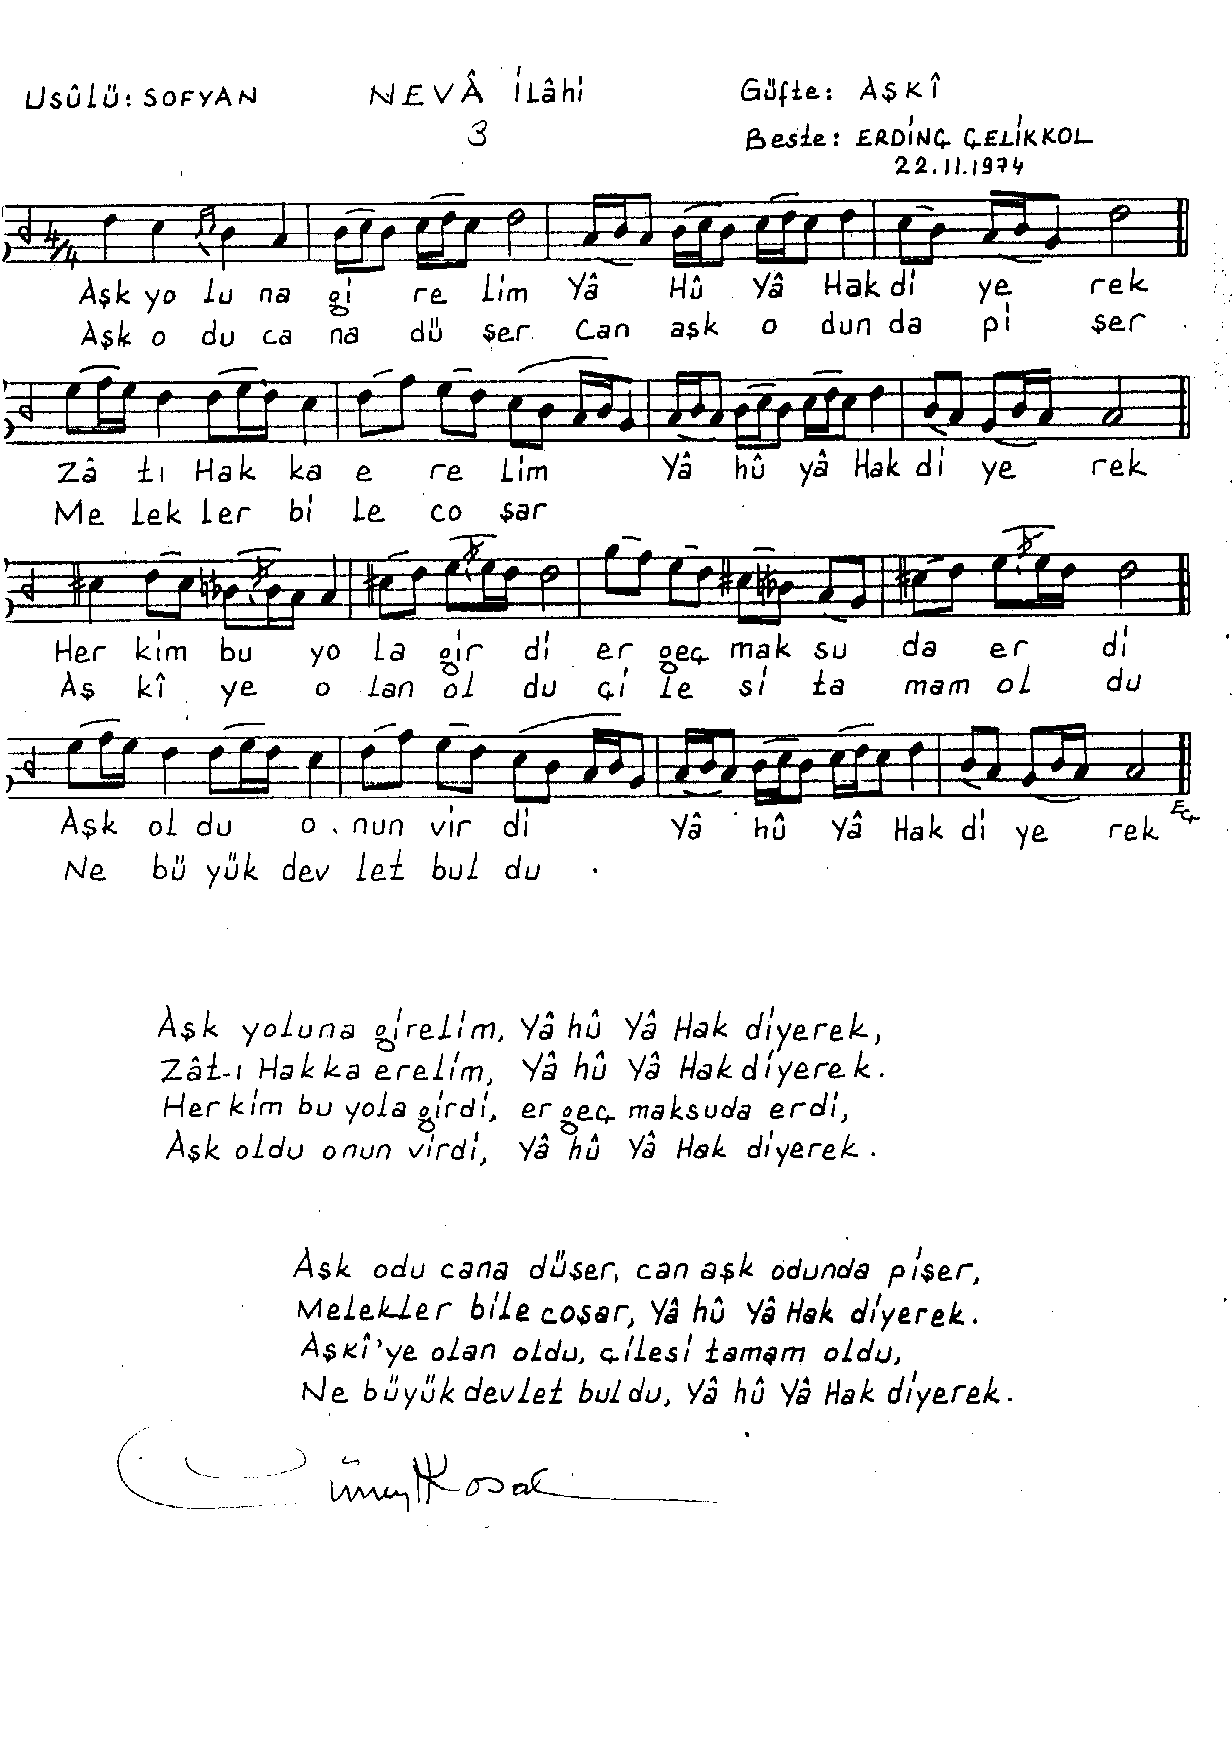 Usûlü: SOFYAN NEVÂ İLâhi Güfte: AŞKÎ
3 Beste: ERDİNÇ ÇELİKKOL
22.11.1974
4/4
Aşk yo lu na gi re lim Yâ Hû Yâ Hak di ye rek
Aşk o du ca na dü şer Can aşk o dun da pi şer
Zâ tı Hak ka e re lim Yâ hû yâ Hak di ye rek
Me lek ler bi le co şar
Her kim bu yo la gir di er geç mak su da er di
Aş kî ye o lan ol du çi le si ta mam ol du
Aşk ol du o nun vir di Yâ hû Yâ Hak di ye rek
Ne bü yük dev let bul du
Aşk yoluna girelim, Yâ hû Yâ Hak diyerek,
Zât-ı Hakka erelim, Yâ hû Yâ Hak diyerek.
Her kim bu yola girdi, er geç maksuda erdi,
Aşk oldu onun virdi, Yâ hû Yâ Hak diyerek.
Aşk odu cana düşer, can aşk odunda pişer,
Melekler bile coşar, Yâ hû Yâ Hak diyerek.
Aşkî'ye olan oldu, çilesi tamam oldu,
Ne büyük devlet buldu, Yâ hû Yâ Hak diyerek.